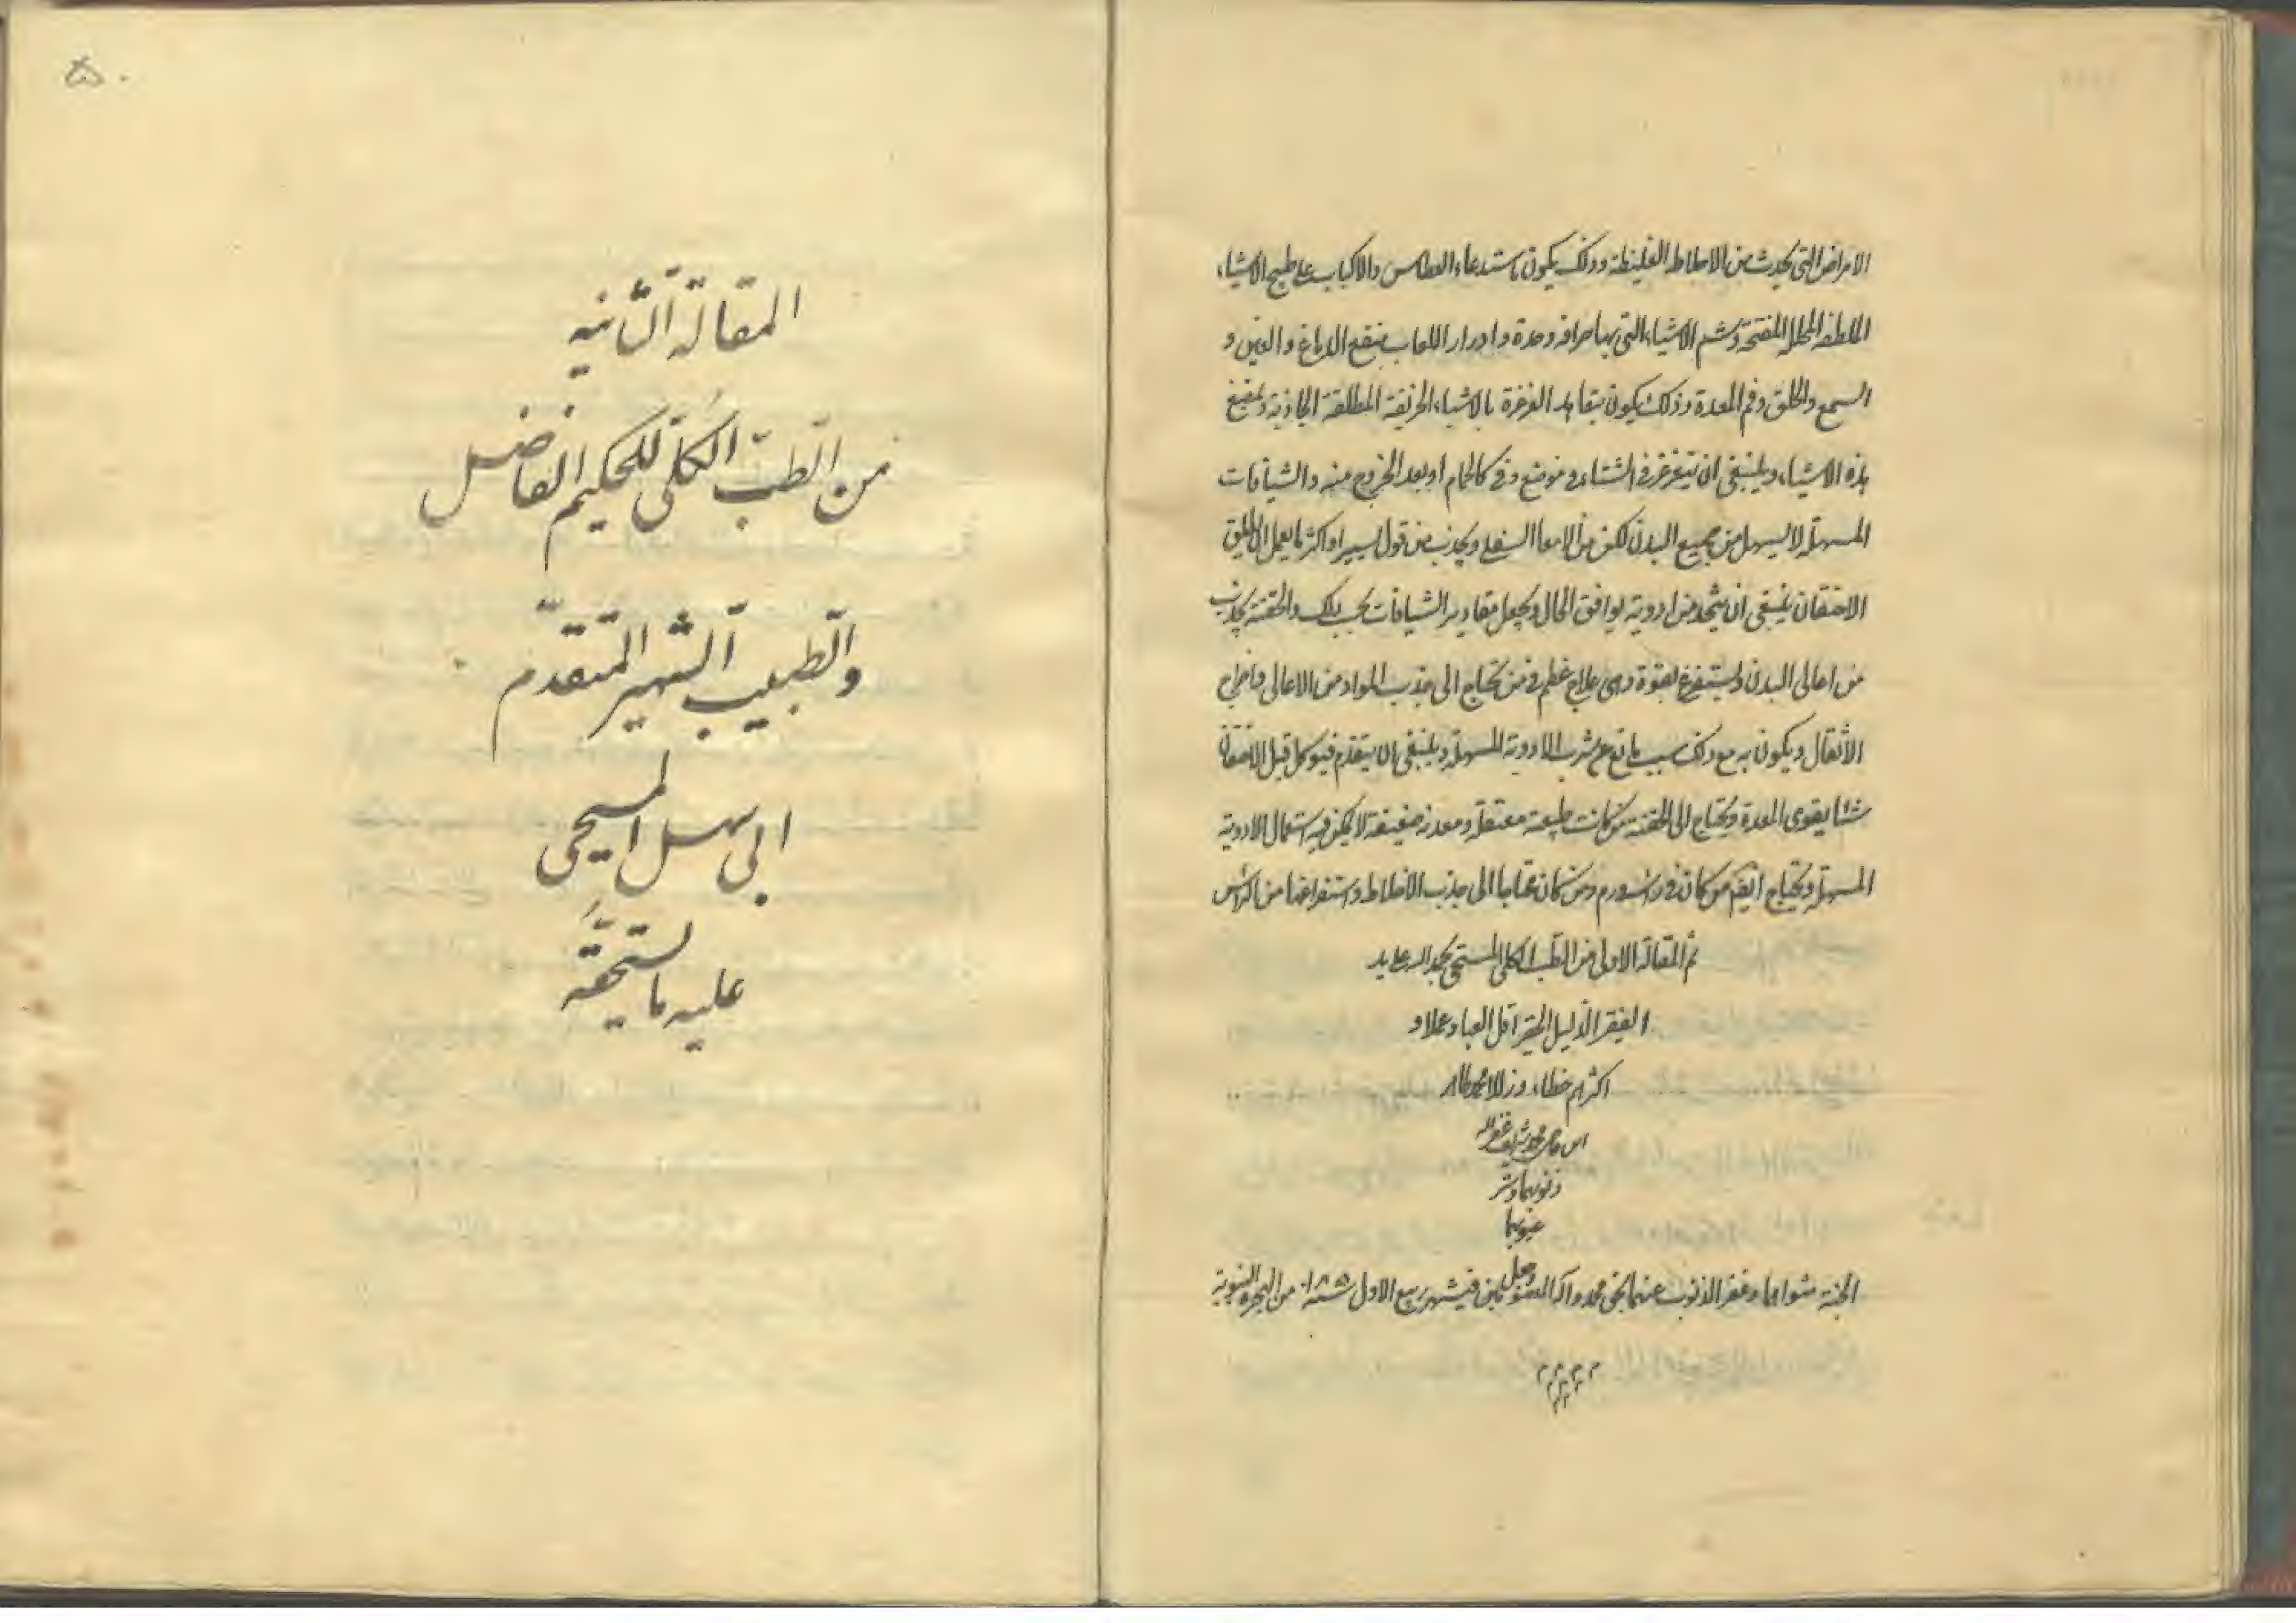 الامراض التى يحدث من الاخلاط الغليظة وذلك يكون باستدعاء العطاس والاكباب على طبيخ الاشياء
الملطفة المحللة المفتحة وشم الاشياء التى بها حرافة وحدة وادرار اللعاب ينفع الدماغ والعين و
السمع والحلق وفم المعدة وذلك يكون بتعاهد الغرغرة بالاشياء الحريفة المطلقة الجاذبة ولمضغ
هذه الاشياء وينبغى ان يتغرغر فى الشتاء فى موضع دفى كالحمام او بعد الخروج منه والشيافات
المسهلة لا يسهل من جميع البدن لكن من الامعا السفلى ويجذب من فوق اليسير او اكثر ما يعمل
الاحتقان ينبغى ان يتخذ من ادوية يوافق الحال ويجعل مقادير الشيافات بحسب ذلك والحقنة يجذب
من اعالى البدن ويستفرغ بقوة وهى علاج عظيم فى من يحتاج الى جذب المواد من الاعالى واخراج
الاثقال ويكون به مع ذلك سبب مانع عن شرب الادوية المسهلة وينبغى ان يتقدم فيوكل قبل الاحتقان
شئا يقوى المعدة ويحتاج الى الحقنة من كانت طبيعته معتقلة ومعدته ضعيفة لا يمكن فيه استعمال الادوية
المسهلة ويحتاج ايضم من كان فى راسه ورم ومن كان محتاجا الى جذب الاخلاط واستفراغها من الراس
تم المقالة الاولى من الطب الكلى للمسيحى بحمد الله على يد
الفقير الذليل الحقير اقل العباد عملا و
اكثرهم خطاء وزللا محمد
ابن محمد شريف غفر الله
ذنوبهما وستر
عيوبهما
وجعل
الجنة مثواهما وغفر الذنوب عنهما بحق محمد وآله فى شهر ربيع الاول سنة ١٠٨٥ من الهجرة النبوية
٥٠
المقالة الثّانيه
من الطّبّ الكُلّى للحكيم الفاضل
والطّبيب الشّهير المتقدّم
ابى سهل المسيحى
عليه ما يستحقّه